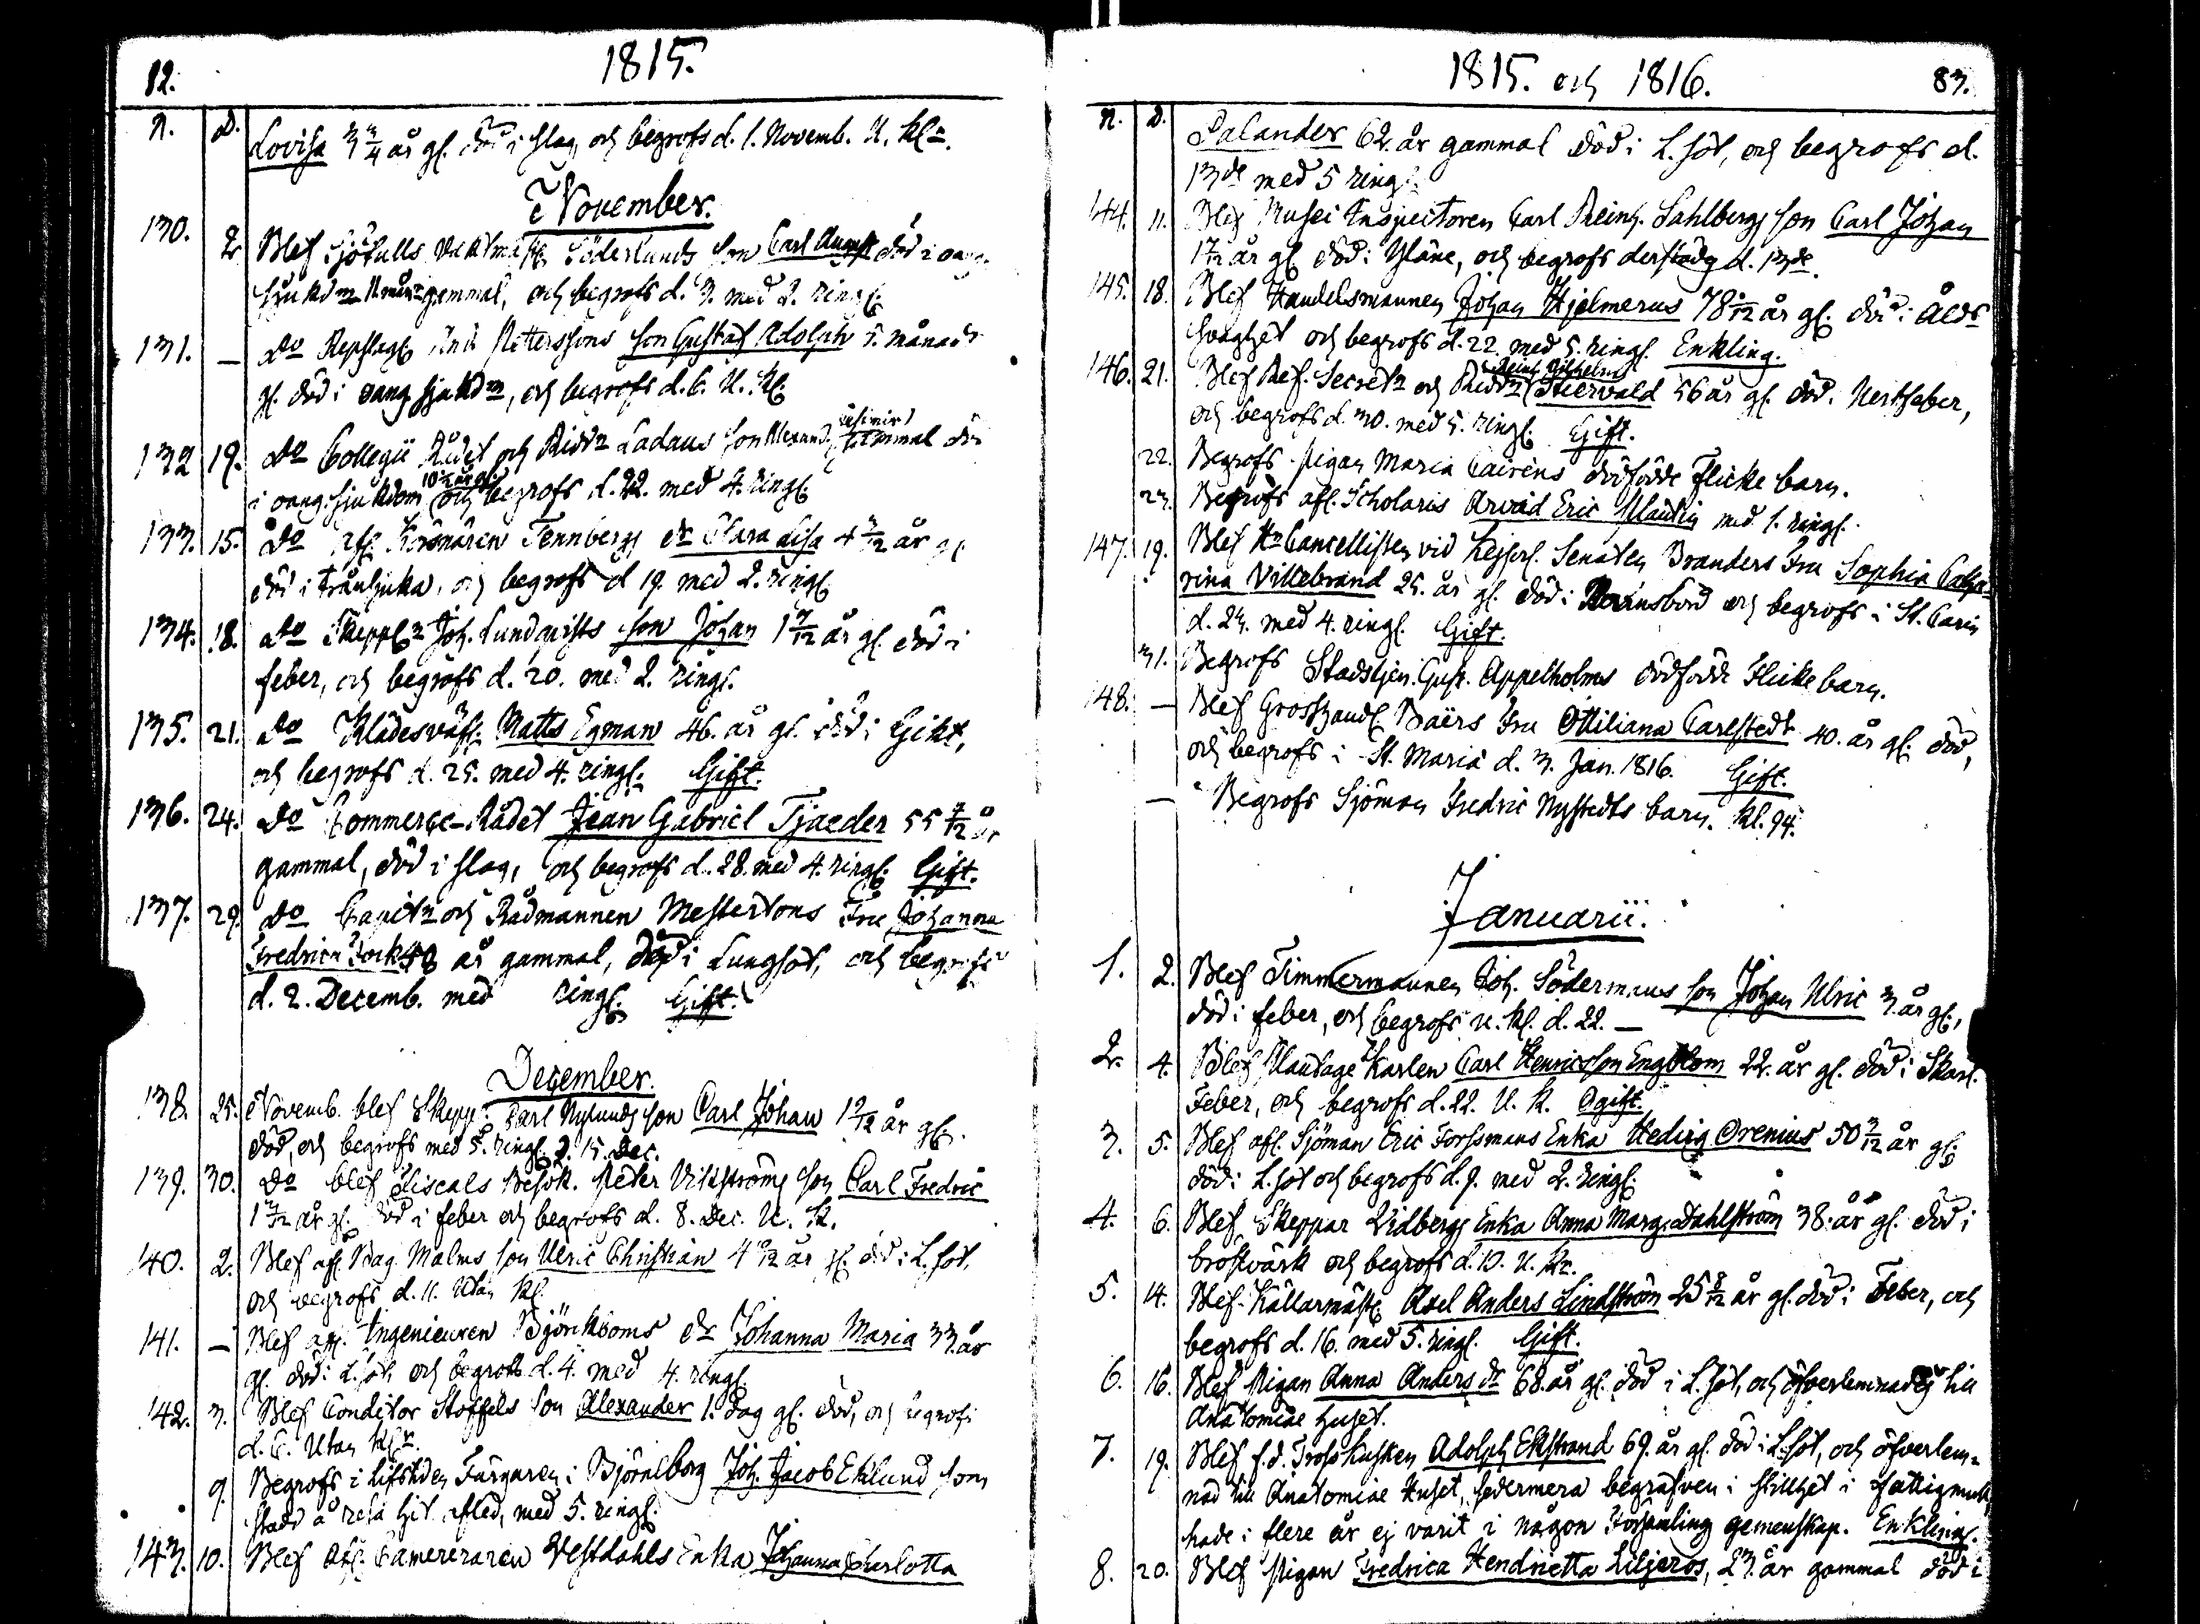 82.
1815.
N. D.
Lovisa 3 3/4 år gl. död i slag, och begrofs d. 1. Novemb. U. Kl.
November.
130. 2 Blef Sjötulls Vaktmäst. Söderlunds son Carl August död i oang.
sjukd:m 11. mån: gammal, och begrofs d. 3. med 2. ringl.
131. — Do Repslag. Pettersons son Gustaf Adolph 5. månad:
gl. död i oang sjukd:m, och begrofs d. 6. U. Kl.
132 19. Do Collegii Rådet och Ridd:n Ladaus son Alexand. Casimir gammal död
i oang. sjukdom 10 1/2 år gl. och begrofs d. 22. med 4. ringl.
133. 15. Do afl. Körsnären Tennbergs d:r Clara Lisa år gl.
död i trånsjuka, och begrofs d 19. med 2. ringl.
134. 18. Do Skepp:n Joh. Lundqvists son Johan 1 3/12 år gl. död i
feber, och begrofs d. 20. med 2. ringl.
135. 21. Do Klädesväfv. Matts Egman 46. år gl. död i Gikt,
och begrofs d. 25. med 4. ringl. Gift.
136. 24. Do Commerce-Rådet Jean Gabriel Tjaeder 55 år
gammal, död i slag, och begrofs d. 28. med 4. ringl. Gift.
137. 29. Do Capit:n och Rådmannen Mestertons Fru Johanna
Fredrica 48 år gammal, död i Lungsot, och begrofs
d. 2. Decemb. med ringl. Gift.
December.
138. 25. Novemb. blef Skepp. Carl Nylunds son Carl Johan år gl.
död, och begrofs med 5. ringl. d. 15. Dec.
139. 30. Do blef Fiscals Besök. Peter Vikströms son Carl Fredric
år gl. död i feber och begrofs d. 8. Dec. U. K.
140. 2. Blef afl. Bag. Malms son Ulric Christian år gl. död i L. sot,
och begrofs d. 11. Utan Kl.
141. — Blef afl. Ingenieuren Björkboms d:r Johanna Maria 33. år
gl. död i L. sot, och begrofs d. 4. med 4. ringl.
142. 3. Blef Conditor Stoffels son Alexander 1. dag gl. död, och begrofs
d. 6. Utan Kl:r.
9. Begrofs i lifstiden Färgaren i Björneborg Joh. Jacob Eklund som
stadd å resa hit afled, med 5. ringl.
143. 10. Blef afl. Camereraren Vestdahls Enka Johanna Charlotta
1815. och 1816.
83.
N. D.
Salander 62. år gammal död i L. sot, och begrofs d.
13de med 5 ringl.
144. 11. Blef Musei Inspectoren Carl Reinh. Sahlbergs son Carl Johan
år gl. död i Yläne, och begrofs derstädes d. 13de.
145. 18. Blef Handelsmannen Johan Hjelmerus 78 år gl. död i Ålds
svaghet och begrofs d. 22. med 5. ringl. Enkling.
146. 21. Blef Ref. Secret:n och Ridd:n Reinh. Wilhelm Stiervald 56 år gl. död i Nervfeber,
och begrofs d. 30. med 5. ringl. Gift.
22. Begrofs Pigan Maria Cairéns dödfödde Flicke barn.
23. Begrofs afl. Scholaris Arvid Eric Klaudin med 1. ringl.
147. 19. Blef H:r Cancellisten vid Kejserl. Senaten Branders Fru Sophia Catha-
rina Villebrand 25. år gl. död i Barnsbörd och begrofs i St. Carin
d. 23. med 4. ringl. Gift.
31. Begrofs Stadstjen. Gust. Appelholms dödfödde Flicke barn.
148. — Blef Grosshandl. Baërs Fru Ottiliana Carlstedt 40. år gl. död,
och begrofs i St. Mariæ d. 3. Jan. 1816. Gift.
— Begrofs Sjöman Fredric Nystedts barn. Kl. 94.
Januarii.
1. 2. Blef Timmermannen Joh. Södermans son Johan Ulric 3. år gl.,
död i feber, och begrofs u. Kl. d. 22. —
2. 4. Blef Plantage Karlen Carl Henricsson Engblom 22. år gl. död i Skarl.
Feber, och begrofs d. 22. U. K. Ogift.
3. 5. Blef afl. Sjöman Eric Forssmans Enka Hedvig Orenius 50 3/12 år gl.
död i L. sot och begrofs d. 9. med 2. ringl.
4. 6. Blef Skeppar Vidbergs Enka Anna Marg. Dahlström 38. år gl. död i
bröstvärk och begrofs d. 10. U. Kl.
5. 14. Blef Källarmäst. Axel Anders Lindström 25 8/12 år gl. död i Feber, och
begrofs d. 16. med 5. ringl. Gift.
6. 16. Blef Pigan Anna Anders d:r 68. år gl. död i L. sot, och öfverlemnades till
Anatomiæ huset.
7. 19. Blef f. d. Trosskusken Adolph Ekstrand 69. år gl. död i L. sot, och öfverlem-
nad till Anatomiæ Huset, sedermera begrafven i stillhet i fattigmull,
hade i flere år ej varit i någon Församling gemenskap. Enkling.
8. 20. Blef Pigan Fredrica Hendrietta Liljeros, 23. år gammal död i